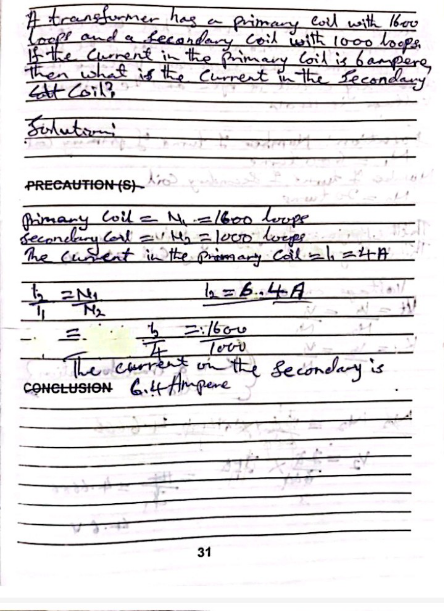 A transformer has a primary coil with 1600
loops and a secondary coil with 1000 loops.
If the current in the primary coil is 6 ampere,
then what is the current in the secondary
Coil?
Solution:
PRECAUTION (S)
primary Coil = N₁ = 1600 loops
secondary Coil = N₂ = 1000 loops
The current in the primary Coil = I₁ = 4A
I₂ = N₁ I₂ = 6.4A
I₁ N₂
= I₂ = 1600
4 1000
The current in the Secondary is
CONCLUSION 6.4 Ampere
31